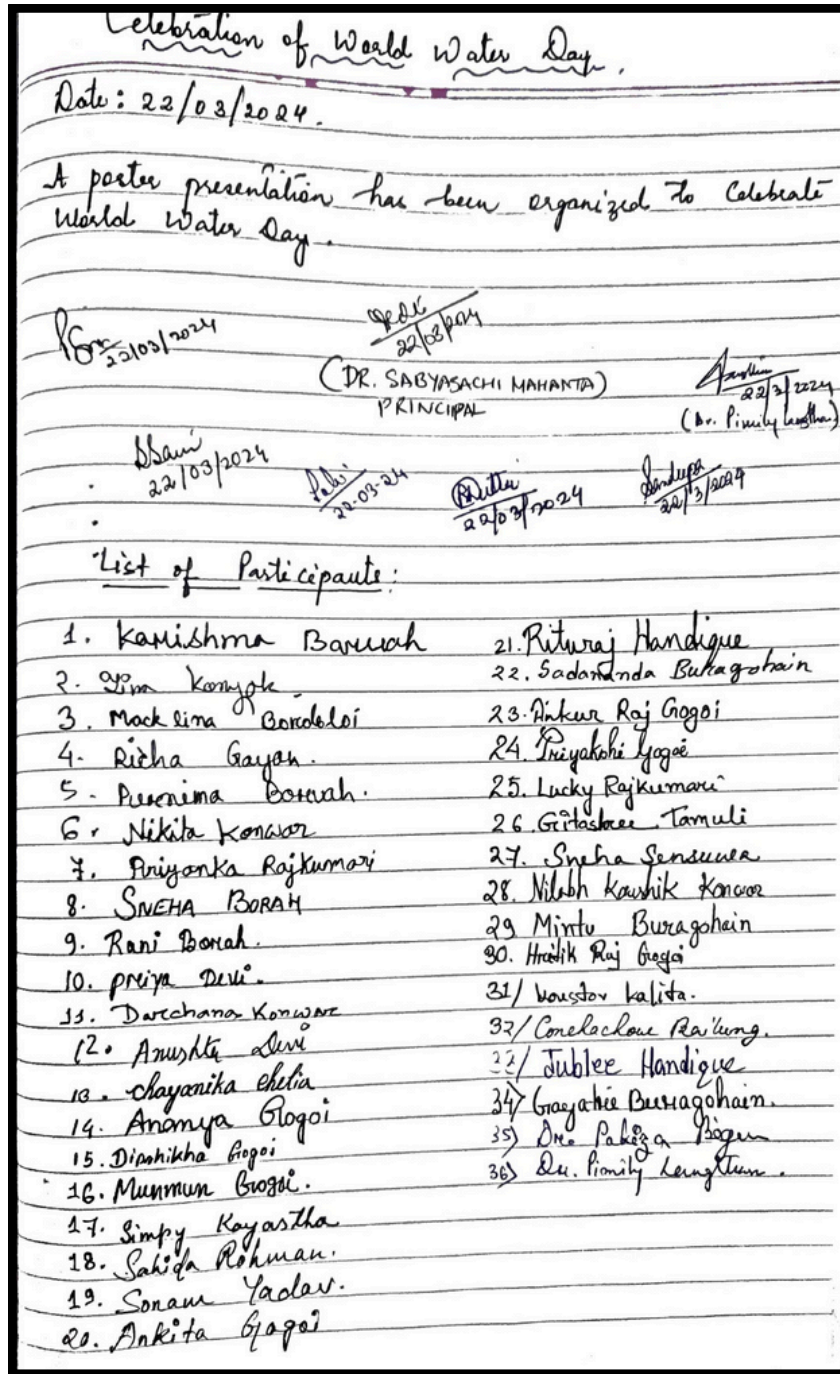 Celebration of World Water Day.
Date: 22/03/2024.
A poster presentation has been organized to Celebrate
World Water Day.
22/03/2024
22/03/2024
(DR. SABYASACHI MAHANTA)
PRINCIPAL
22/3/2024
(Dr. Pimily)
22/03/2024
22-03-24
22/03/2024
22/3/2024
List of Participants:
1. Karishma Baruah
2. Konyak
3. Macklina Bordoloi
4. Richa Gayan.
5. Purnima Boruah.
6. Nikita Konwar
7. Priyanka Rajkumari
8. SNEHA BORAH
9. Rani Borah.
10. Priya Devi.
11. Darchana Konwar
12. Anushka Devi
13. Chayanika Chetia
14. Ananya Gogoi
15. Dipshikha Gogoi
16. Munmun Gogoi.
17. Simpy Kayastha
18. Sahida Rohman.
19. Sonam Yadav.
20. Ankita Gogoi
21. Rituraj Handique
22. Sadananda Buragohain
23. Ankur Raj Gogoi
24. Priyakshi Gogoi
25. Lucky Rajkumari
26. Gitashree Tamuli
27. Sneha Sensuwa
28. Nilabh Kaushik Konwar
29 Mintu Buragohain
30. Hridik Raj Gogoi
31/ Koustov Kalita.
32/
33/ Jublee Handique
34/ Gayatrie Buragohain.
35) Dr. Pakiza Begum
36) Dr. Pimily